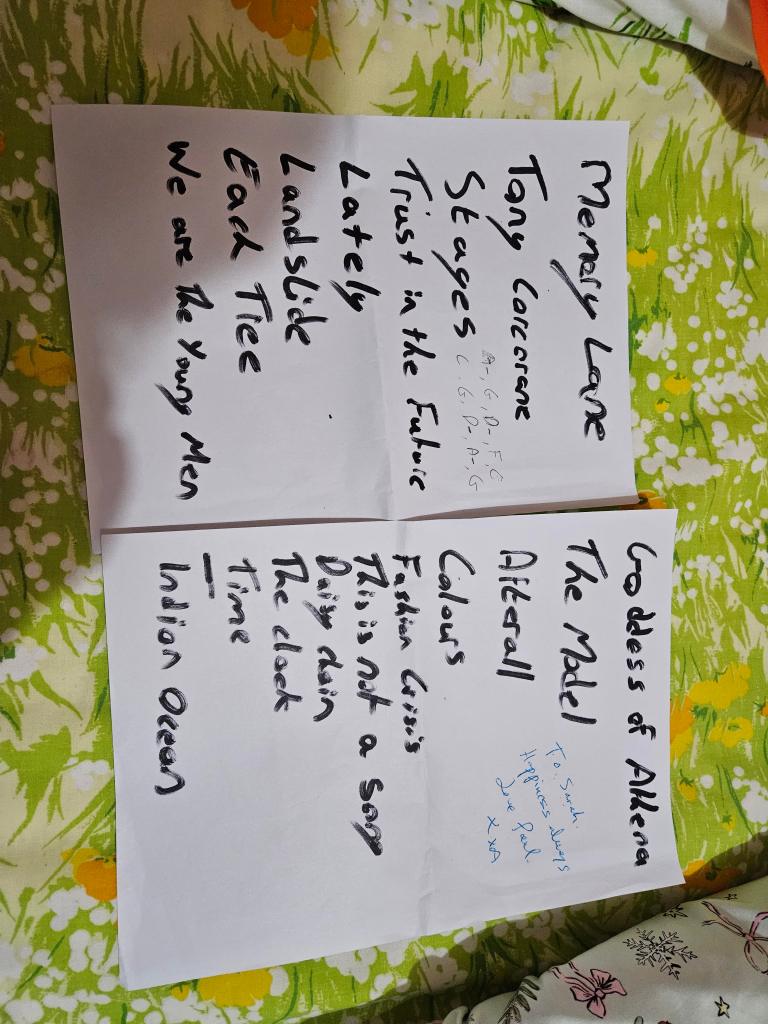 Memory Lane
Tony Corcorane
Stages
A-, G, D-, F, C
C, G, D-, A-, G
Trust in the Future
Lately
Landslide
Each Tree
We are The Young Men
Goddess of Athena
The Model
Afterall
Colours
To Sarah.
Happiness Always
Love Paul
xxx
Fashion Crisis
This is not a Song
Daisy chain
The clock
Time
Indian Ocean